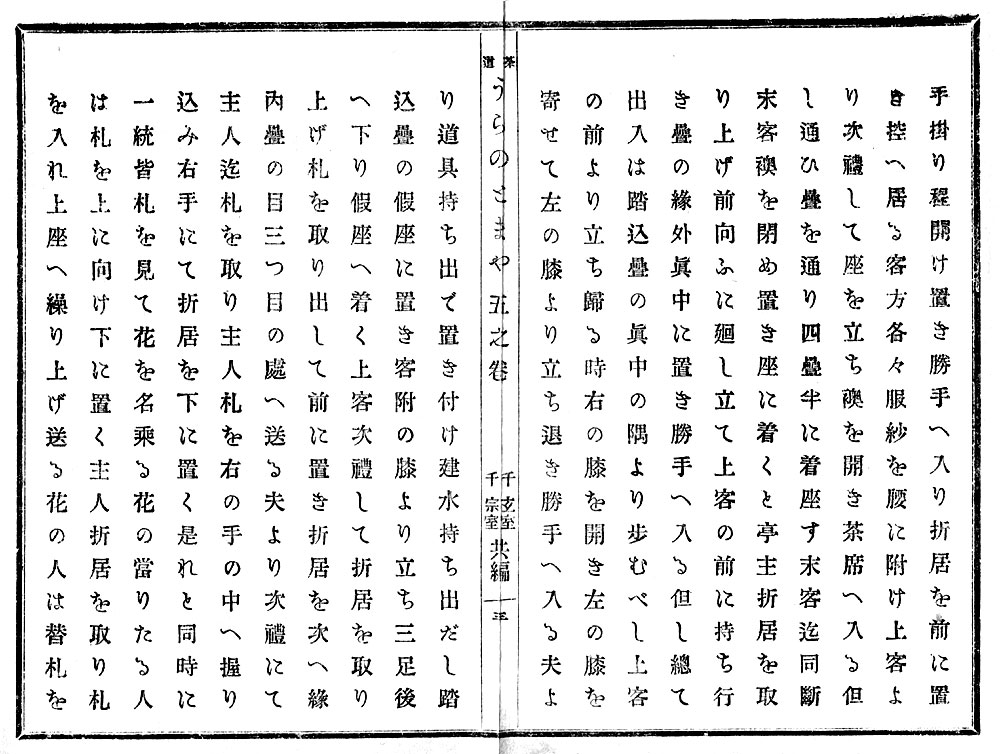 手掛り程開け置き勝手へ入り折居を前に置
き控へ居る客方各々服紗を腰に附け上客よ
り次禮して座を立ち襖を開き茶席へ入る但
し通ひ疊を通り四疊半に着座す末客迄同斷
末客襖を閉め置き座に着くと亭主折居を取
り上げ前向ふに廻し立て上客の前に持ち行
き疊の緣外眞中に置き勝手へ入る但し總て
出入は踏込疊の眞中の隅より步むべし上客
の前より立ち歸る時右の膝を開き左の膝を
寄せて左の膝より立ち退き勝手へ入る夫よ
茶道うらのとまや五之卷
千玄室
千宗室
共編
り道具持ち出で置き付け建水持ち出だし踏
込疊の假座に置き客附の膝より立ち三足後
へ下り假座へ着く上客次禮して折居を取り
上げ札を取り出して前に置き折居を次へ緣
內疊の目三つ目の處へ送る夫より次禮にて
主人迄札を取り主人札を右の手の中へ握り
込み右手にて折居を下に置く是れと同時に
一統皆札を見て花を名乘る花の當りたる人
は札を上に向け下に置く主人折居を取り札
を入れ上座へ繰り上げ送る花の人は替札を